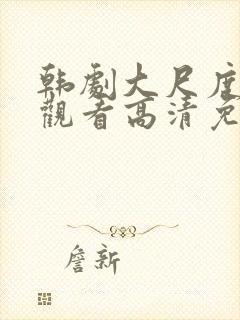 韩劇大尺度
觀看高清免
詹新